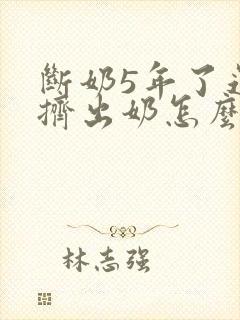 斷奶5年了還
擠出奶怎麼
林志强